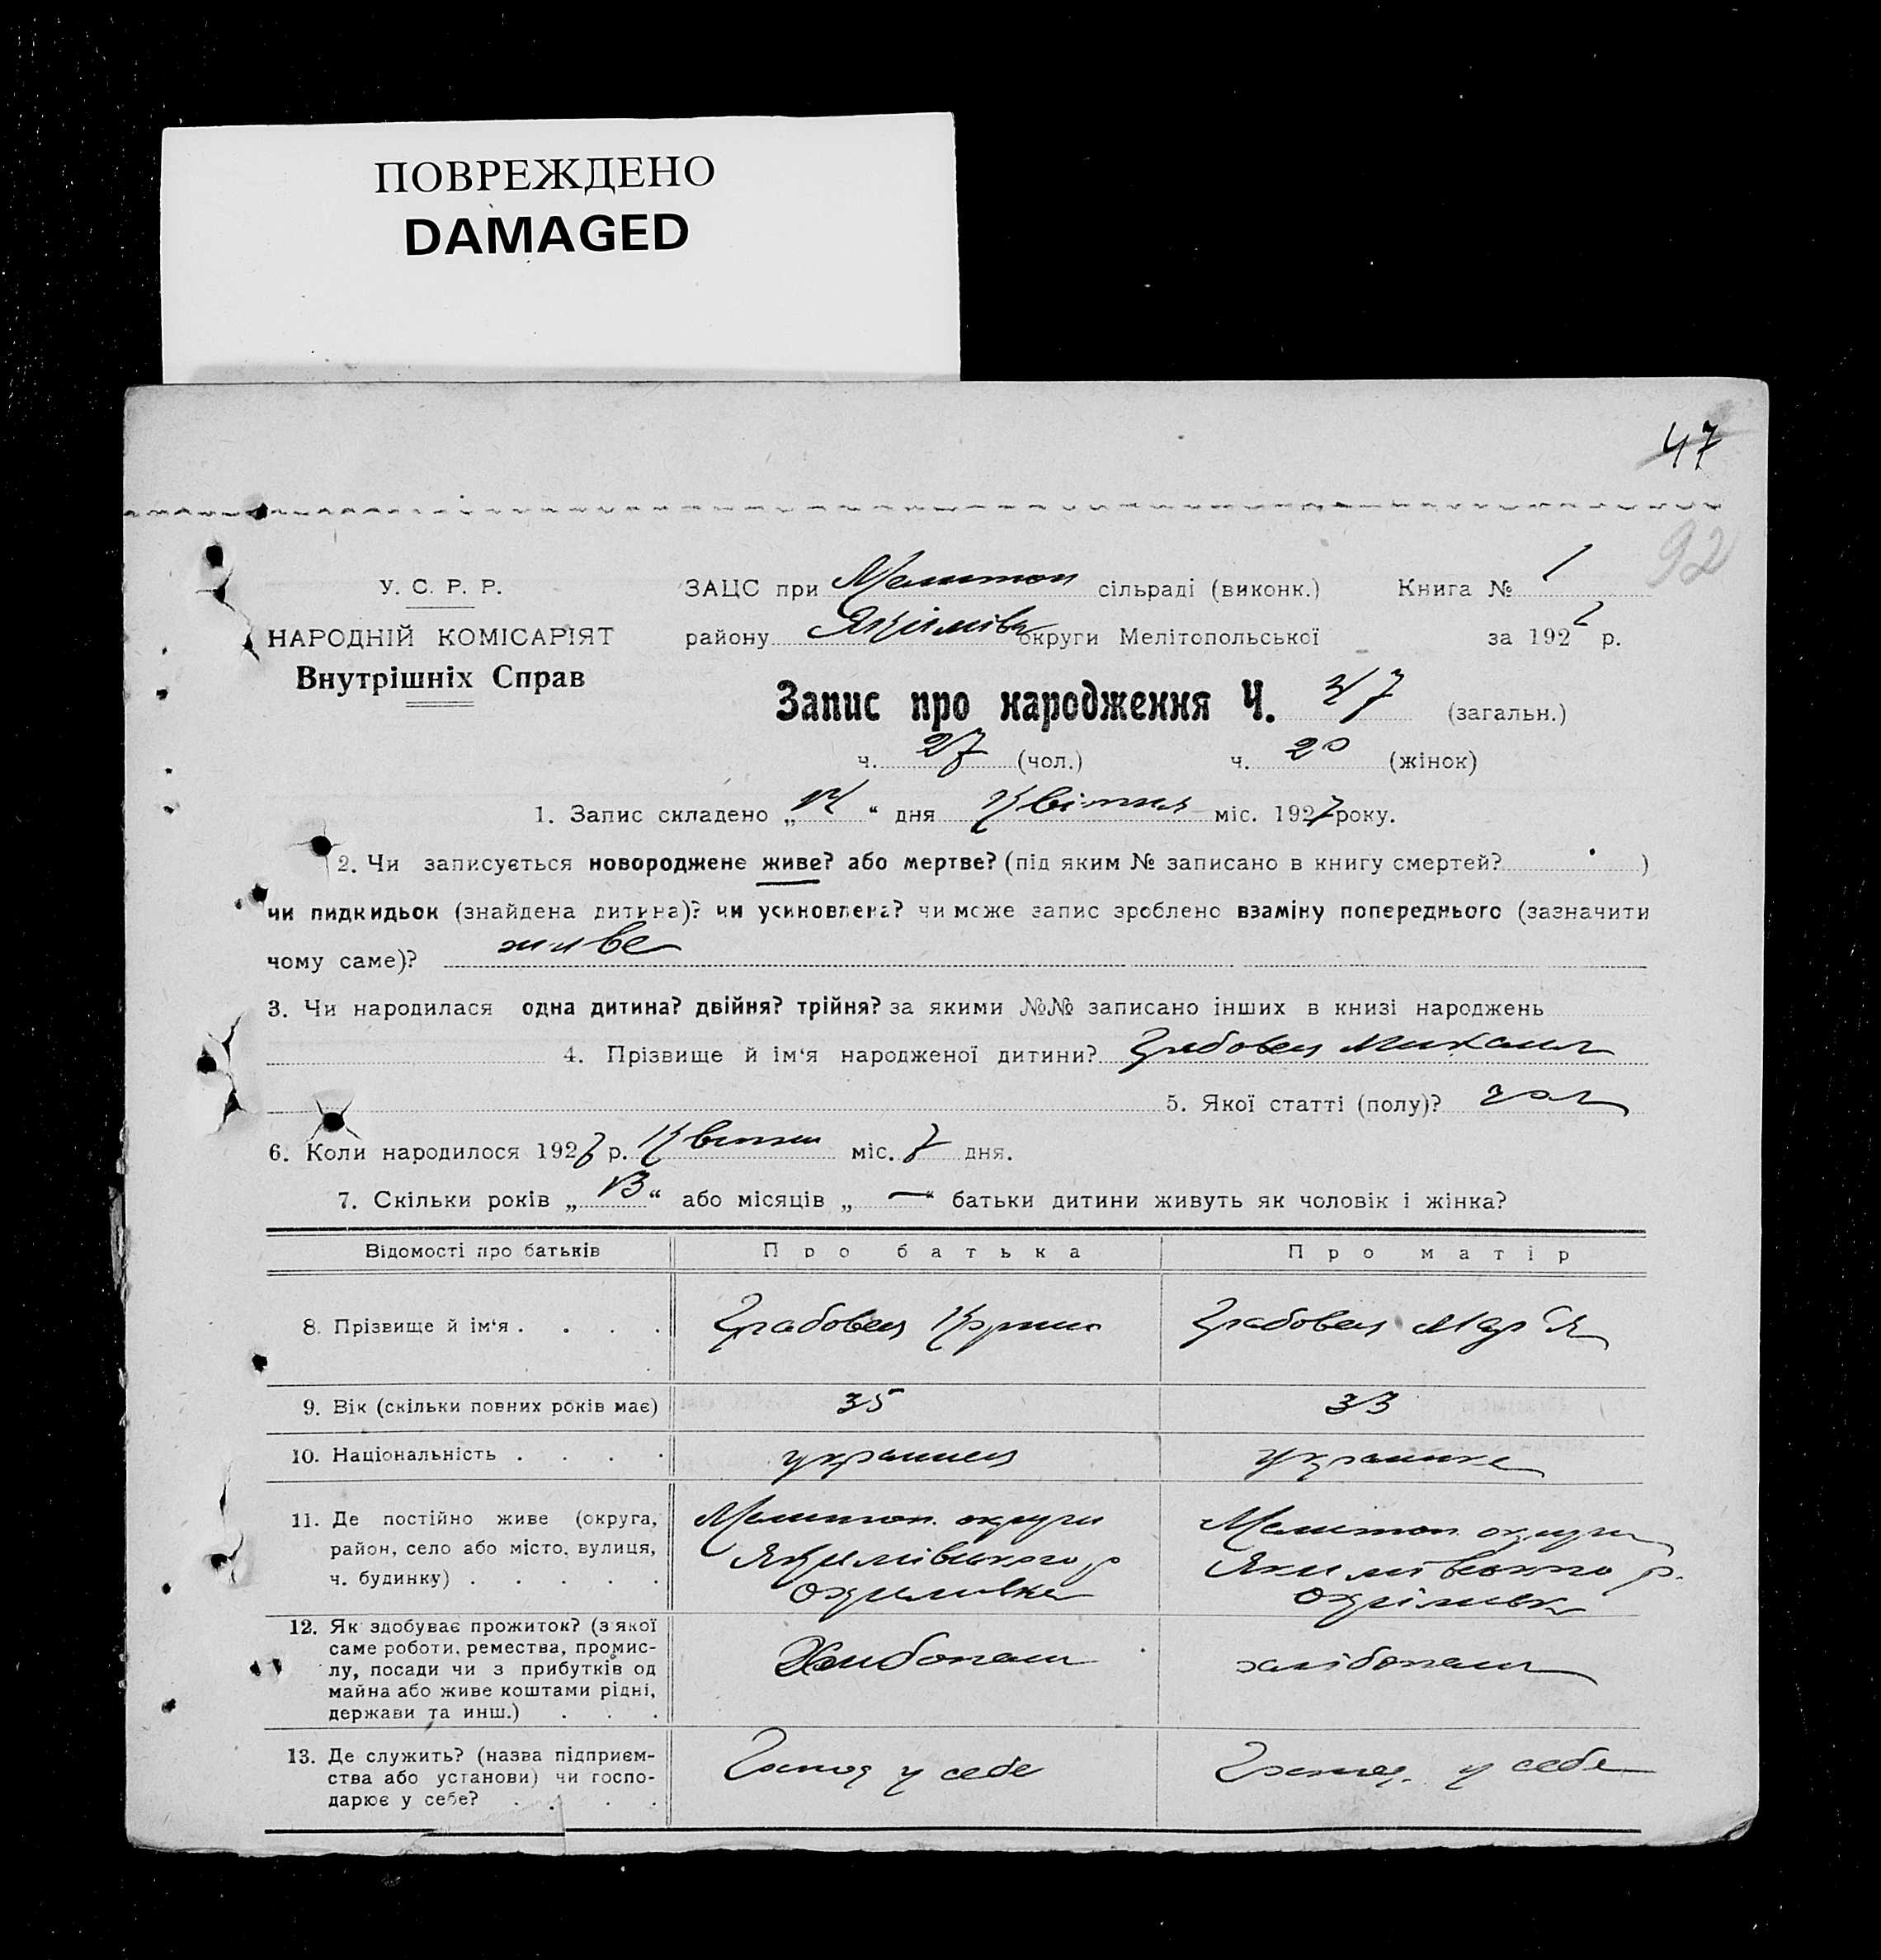 ПОВРЕЖДЕНО
DAMAGED
47
92
У. С. Р. Р.
НАРОДНІЙ КОМІСАРІЯТ
Внутрішніх Справ
ЗАЦС при Мелитоп сільраді (виконк.) Книга № 1
району Якімівк округи Мелітопольської за 192 р.
Запис про народження Ч. 47 (загальн.)
ч. 27 (чол.) ч. 20 (жінок)
1. Запис складено „14“ дня Квітня міс. 1927 року.
2. Чи записується новороджене живе? або мертве? (під яким № записано в книгу смертей? )
чи пидкидьок (знайдена дитина)? чи усиновлена? чи може запис зроблено взаміну попереднього (зазначити
чому саме)? живе
3. Чи народилася одна дитина? двійня? трійня? за якими №№ записано інших в книзі народжень
4. Прізвище й ім‘я народженої дитини? Грабовец Михаил
5. Якої статті (полу)? чол
6. Коли народилося 1927 р. Квитня міс. 7 дня.
7. Скільки років „13“ або місяців „—“ батьки дитини живуть як чоловік і жінка?
Відомості про батьків Про батька Про матір
8. Прізвище й ім‘я . . . . Грабовец Грабовец Мар‘я
9. Вік (скільки повних років має) 35 33
10. Національність . . . . украинец украинка
11. Де постійно живе (округа, Мелитоп. округи Мелитоп округи
район, село або місто, вулиця, Якимівского р Якимівского р.
ч. будинку) . . . . . Охримовка Охрімовка
12. Як здобуває прожиток? (з якої
саме роботи, ремества, промис-
лу, посади чи з прибутків од Хлибопаш хлібопаш
майна або живе коштами рідні,
держави та инш.) . . .
13. Де служить? (назва підприєм- Господ у себе Господ. у себе
ства або установи) чи госпо-
дарює у себе? . . . .